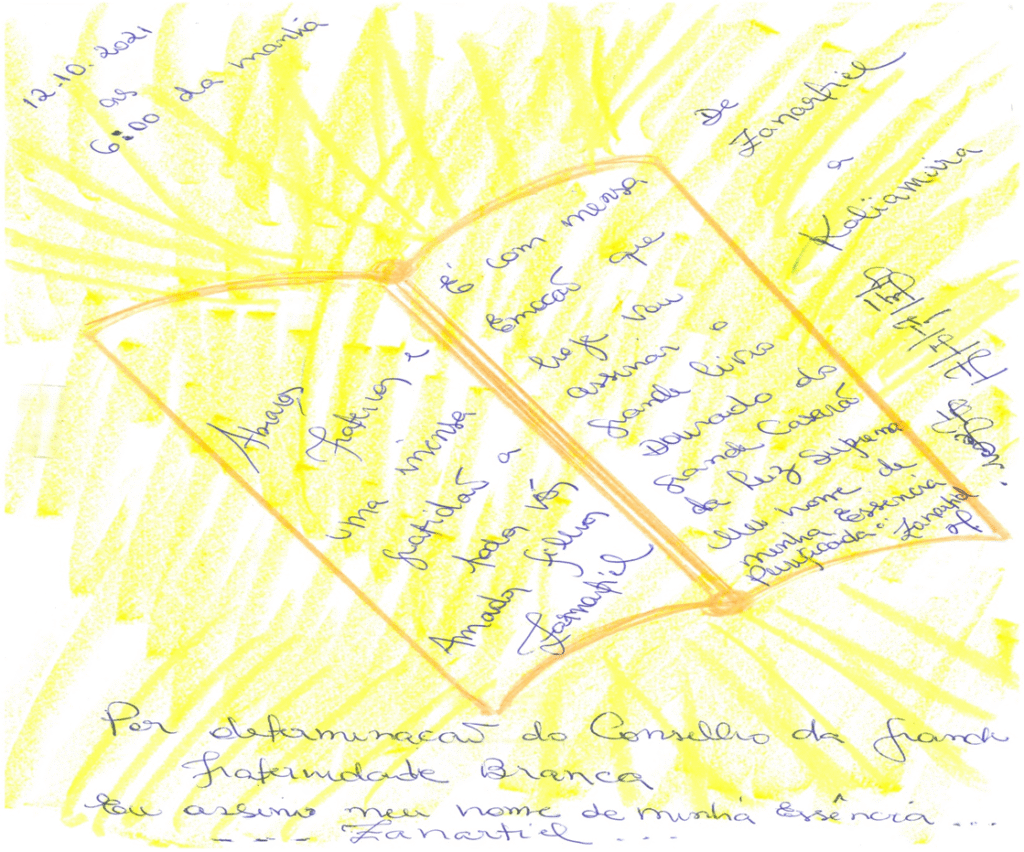 12.10.2021
as
6:00 da manhã
De
Zanartiel
a
Kaliamira
É com mensa
Emocaõ que
hoje vou
assinar o
grande livro
Dourado do
grande Casaraõ
da luz Suprema
Meu nome de
minha Essencia
Purificada "Zanartiel
Abraços
fraternos e
uma imensa
gratidaõ a
todos Vós
Amados filhos
Zarnatiel
Por determinacaõ do Conselho da grande
fraternidade Branca
Eu assino meu nome de minhá Essência ...
- - - Zanartiel ...